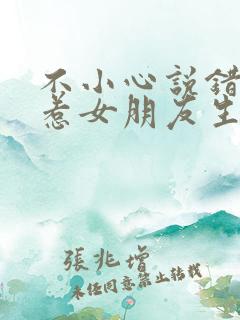 不小心说错
惹女朋友生
張兆增
未经同意禁止转载